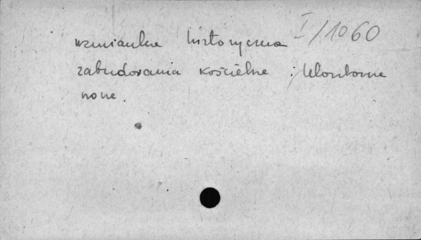 wzmianka historyczna I/1060
zabudowania kościelne i klasztorne
nowe.